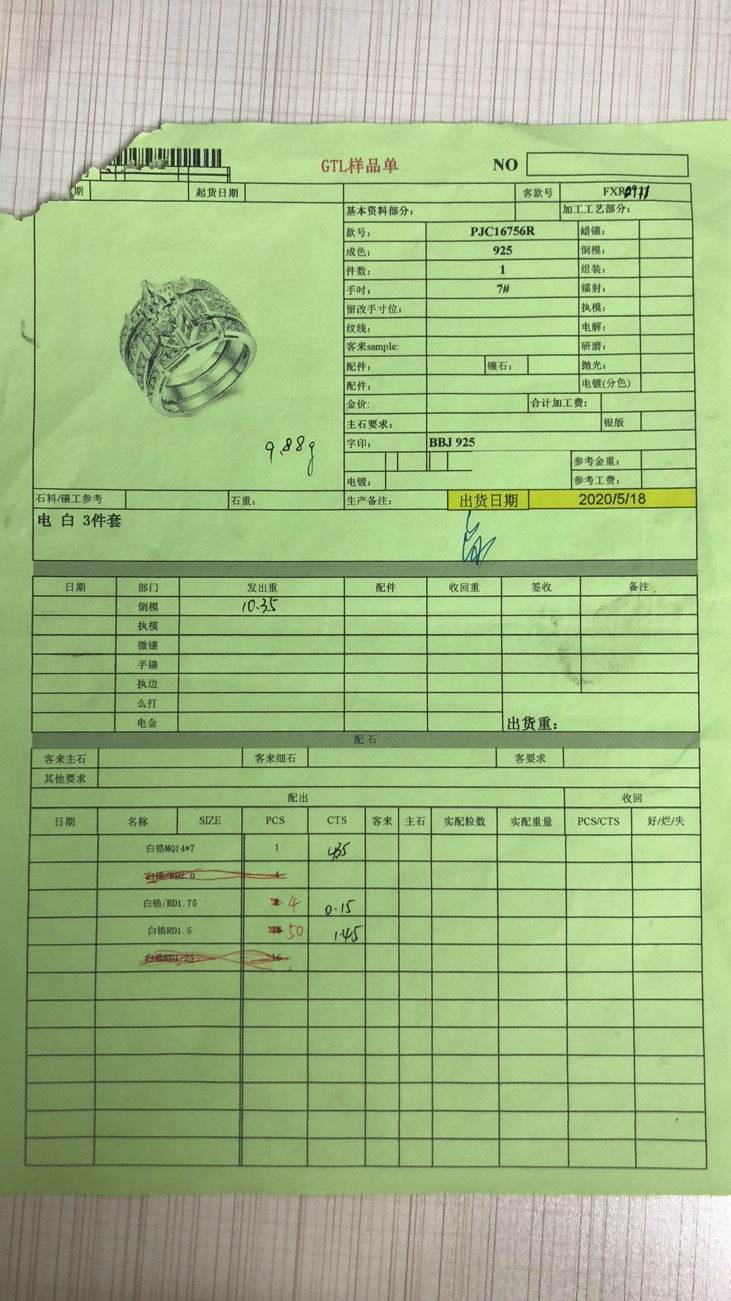 GTL样品单 NO
期 起货日期 客款号 FXR0971
基本资料部分: 加工工艺部分:
款号: PJC16756R 蜡镶:
成色: 925 倒模:
件数: 1 组装:
手吋: 7# 镭射:
留改手寸位: 执模:
纹线: 电解:
客来sample: 研磨:
配件: 镶石: 抛光:
配件: 电镀(分色)
金价: 合计加工费:
主石要求: 银版
字印: BBJ 925
9.88g
参考金重:
电镀: 参考工费:
石料/镶工参考 石重: 生产备注: 出货日期 2020/5/18
电 白 3件套
日期 部门 发出重 配件 收回重 签收 备注
倒模 10.35
执模
微镶
手镶
执边
么打
电金 出货重:
配石
客来主石 客来细石 客要求
其他要求
配出 收回
日期 名称 SIZE PCS CTS 客来 主石 实配粒数 实配重量 PCS/CTS 好/烂/失
白锆MQ14*7 1 4.35
白锆/RD2.0 4
白锆/RD1.75 4 0.15
白锆RD1.5 50 1.45
白锆RD1.25 16